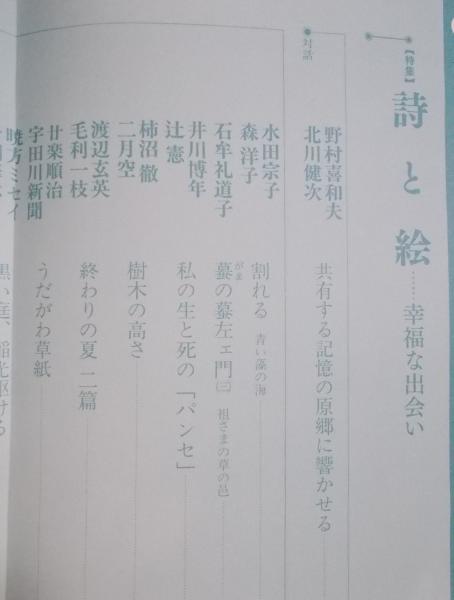 【特集】詩と絵……幸福な出会い
対話
野村喜和夫
北川健次
共有する記憶の原郷に響かせる
水田宗子
森洋子
割れる 青い藻の海
石牟礼道子
蟇の蟇左ェ門㈢ 祖さまの草の邑
がま
井川博年
辻憲
私の生と死の「パンセ」
柿沼徹
二月空
樹木の高さ
渡辺玄英
毛利一枝
終わりの夏 二篇
廿楽順治
宇田川新聞
うだがわ草紙
暁方ミセイ
黒い庭、稲光駆ける